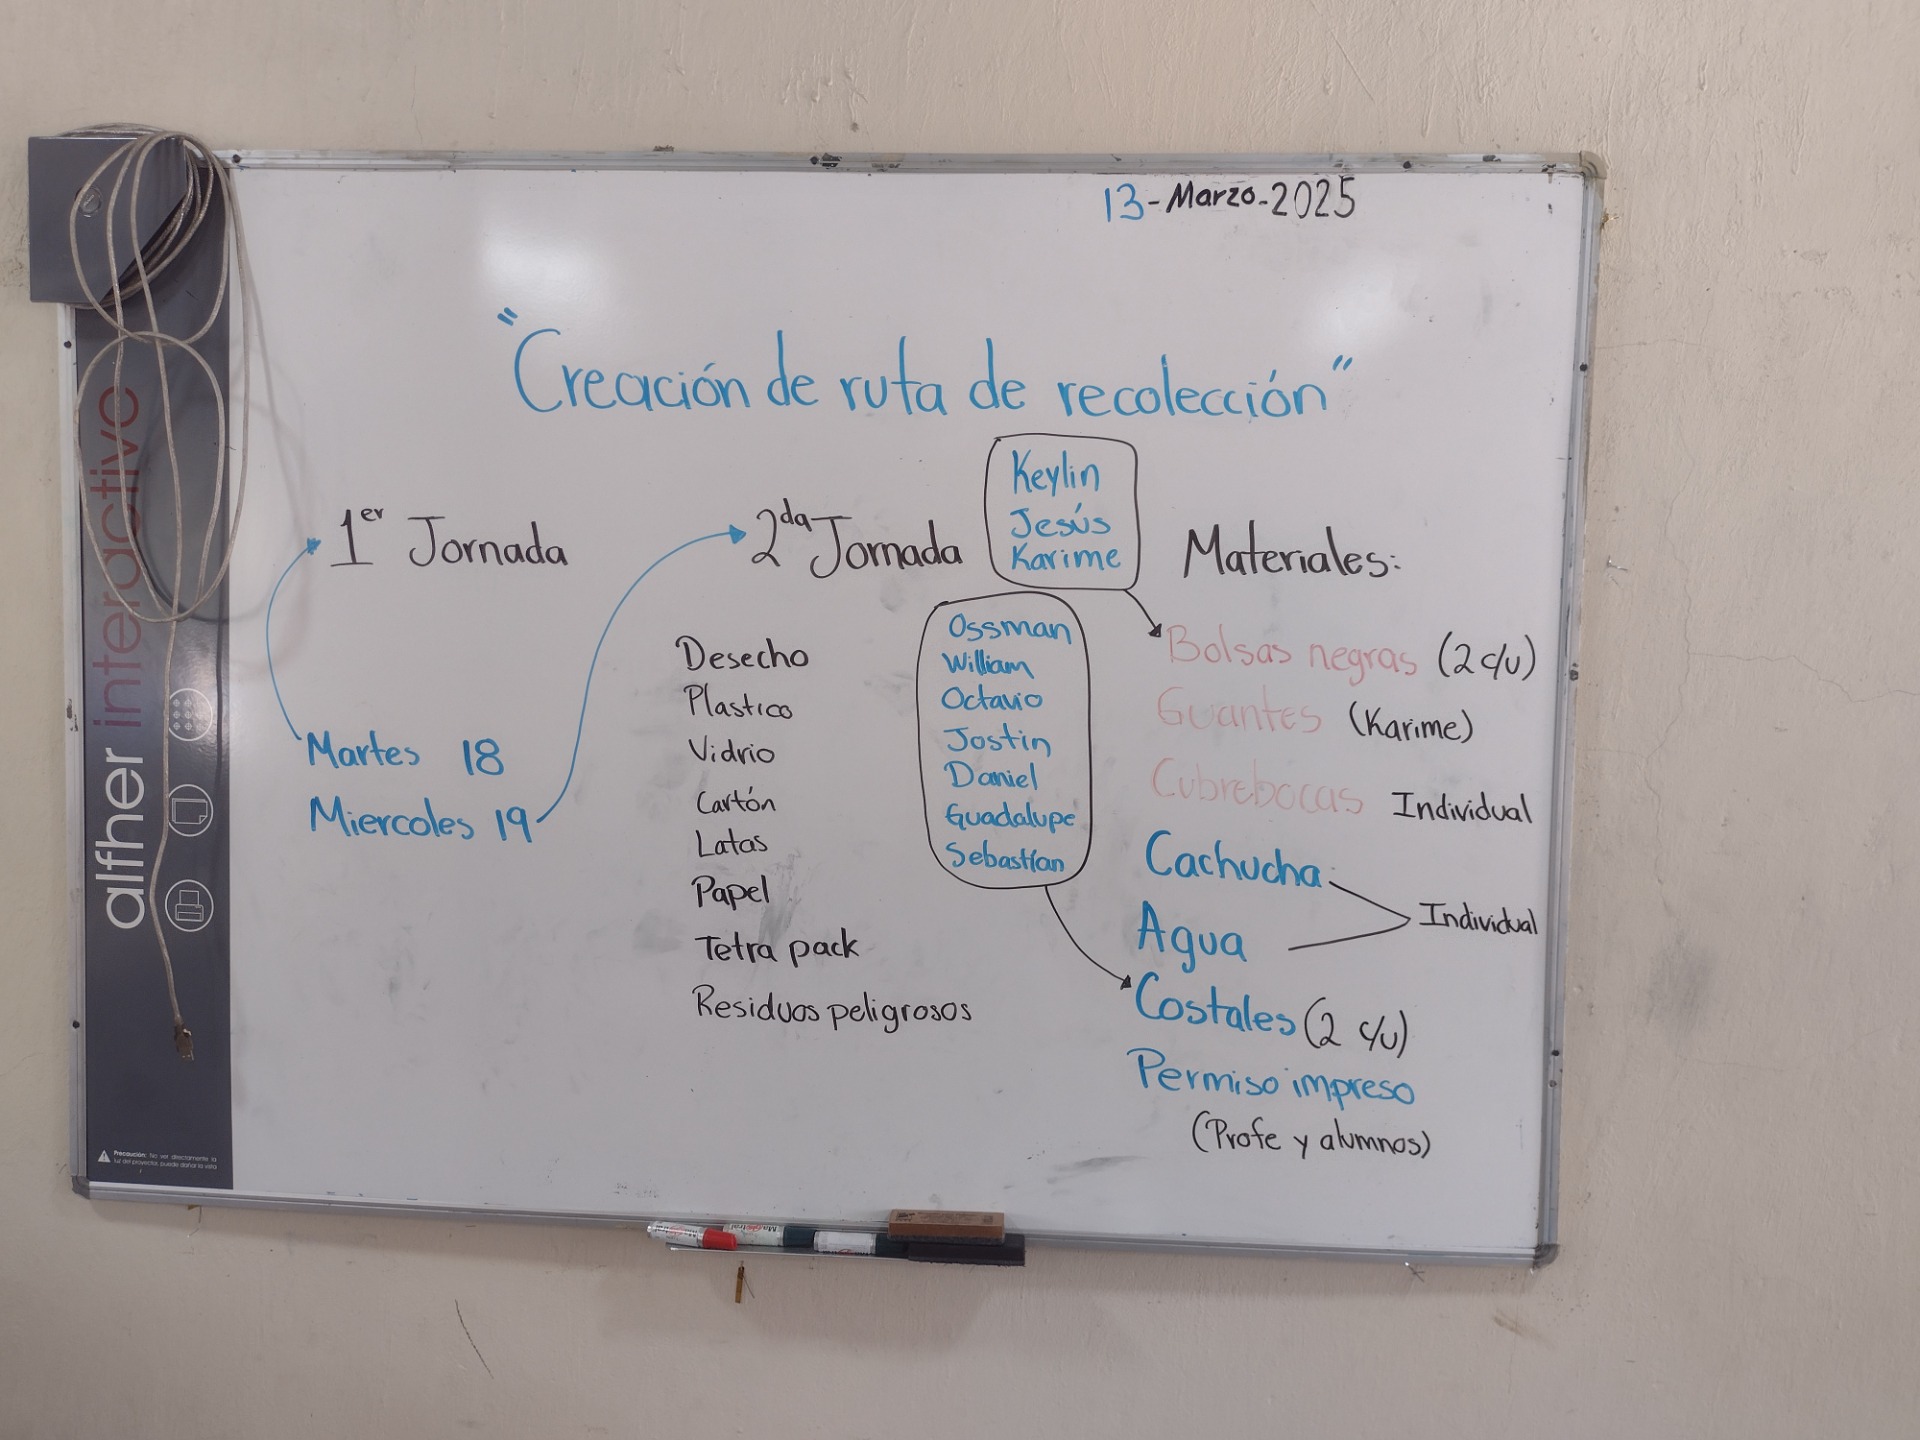 13-Marzo-2025
"Creación de ruta de recolección"
1er Jornada
Martes 18
Miercoles 19
2da Jornada
Desecho
Plastico
Vidrio
Cartón
Latas
Papel
Tetra pack
Residuos peligrosos
Keylin
Jesús
Karime
Ossman
William
Octavio
Jostin
Daniel
Guadalupe
Sebastían
Materiales:
Bolsas negras (2 c/u)
Guantes (Karime)
Cubrebocas Individual
Cachucha
Agua
Individual
Costales (2 c/u)
Permiso impreso
(Profe y alumnos)
alfher interactive
Precaución: No ver directamente la
luz del proyector, puede dañar la vista